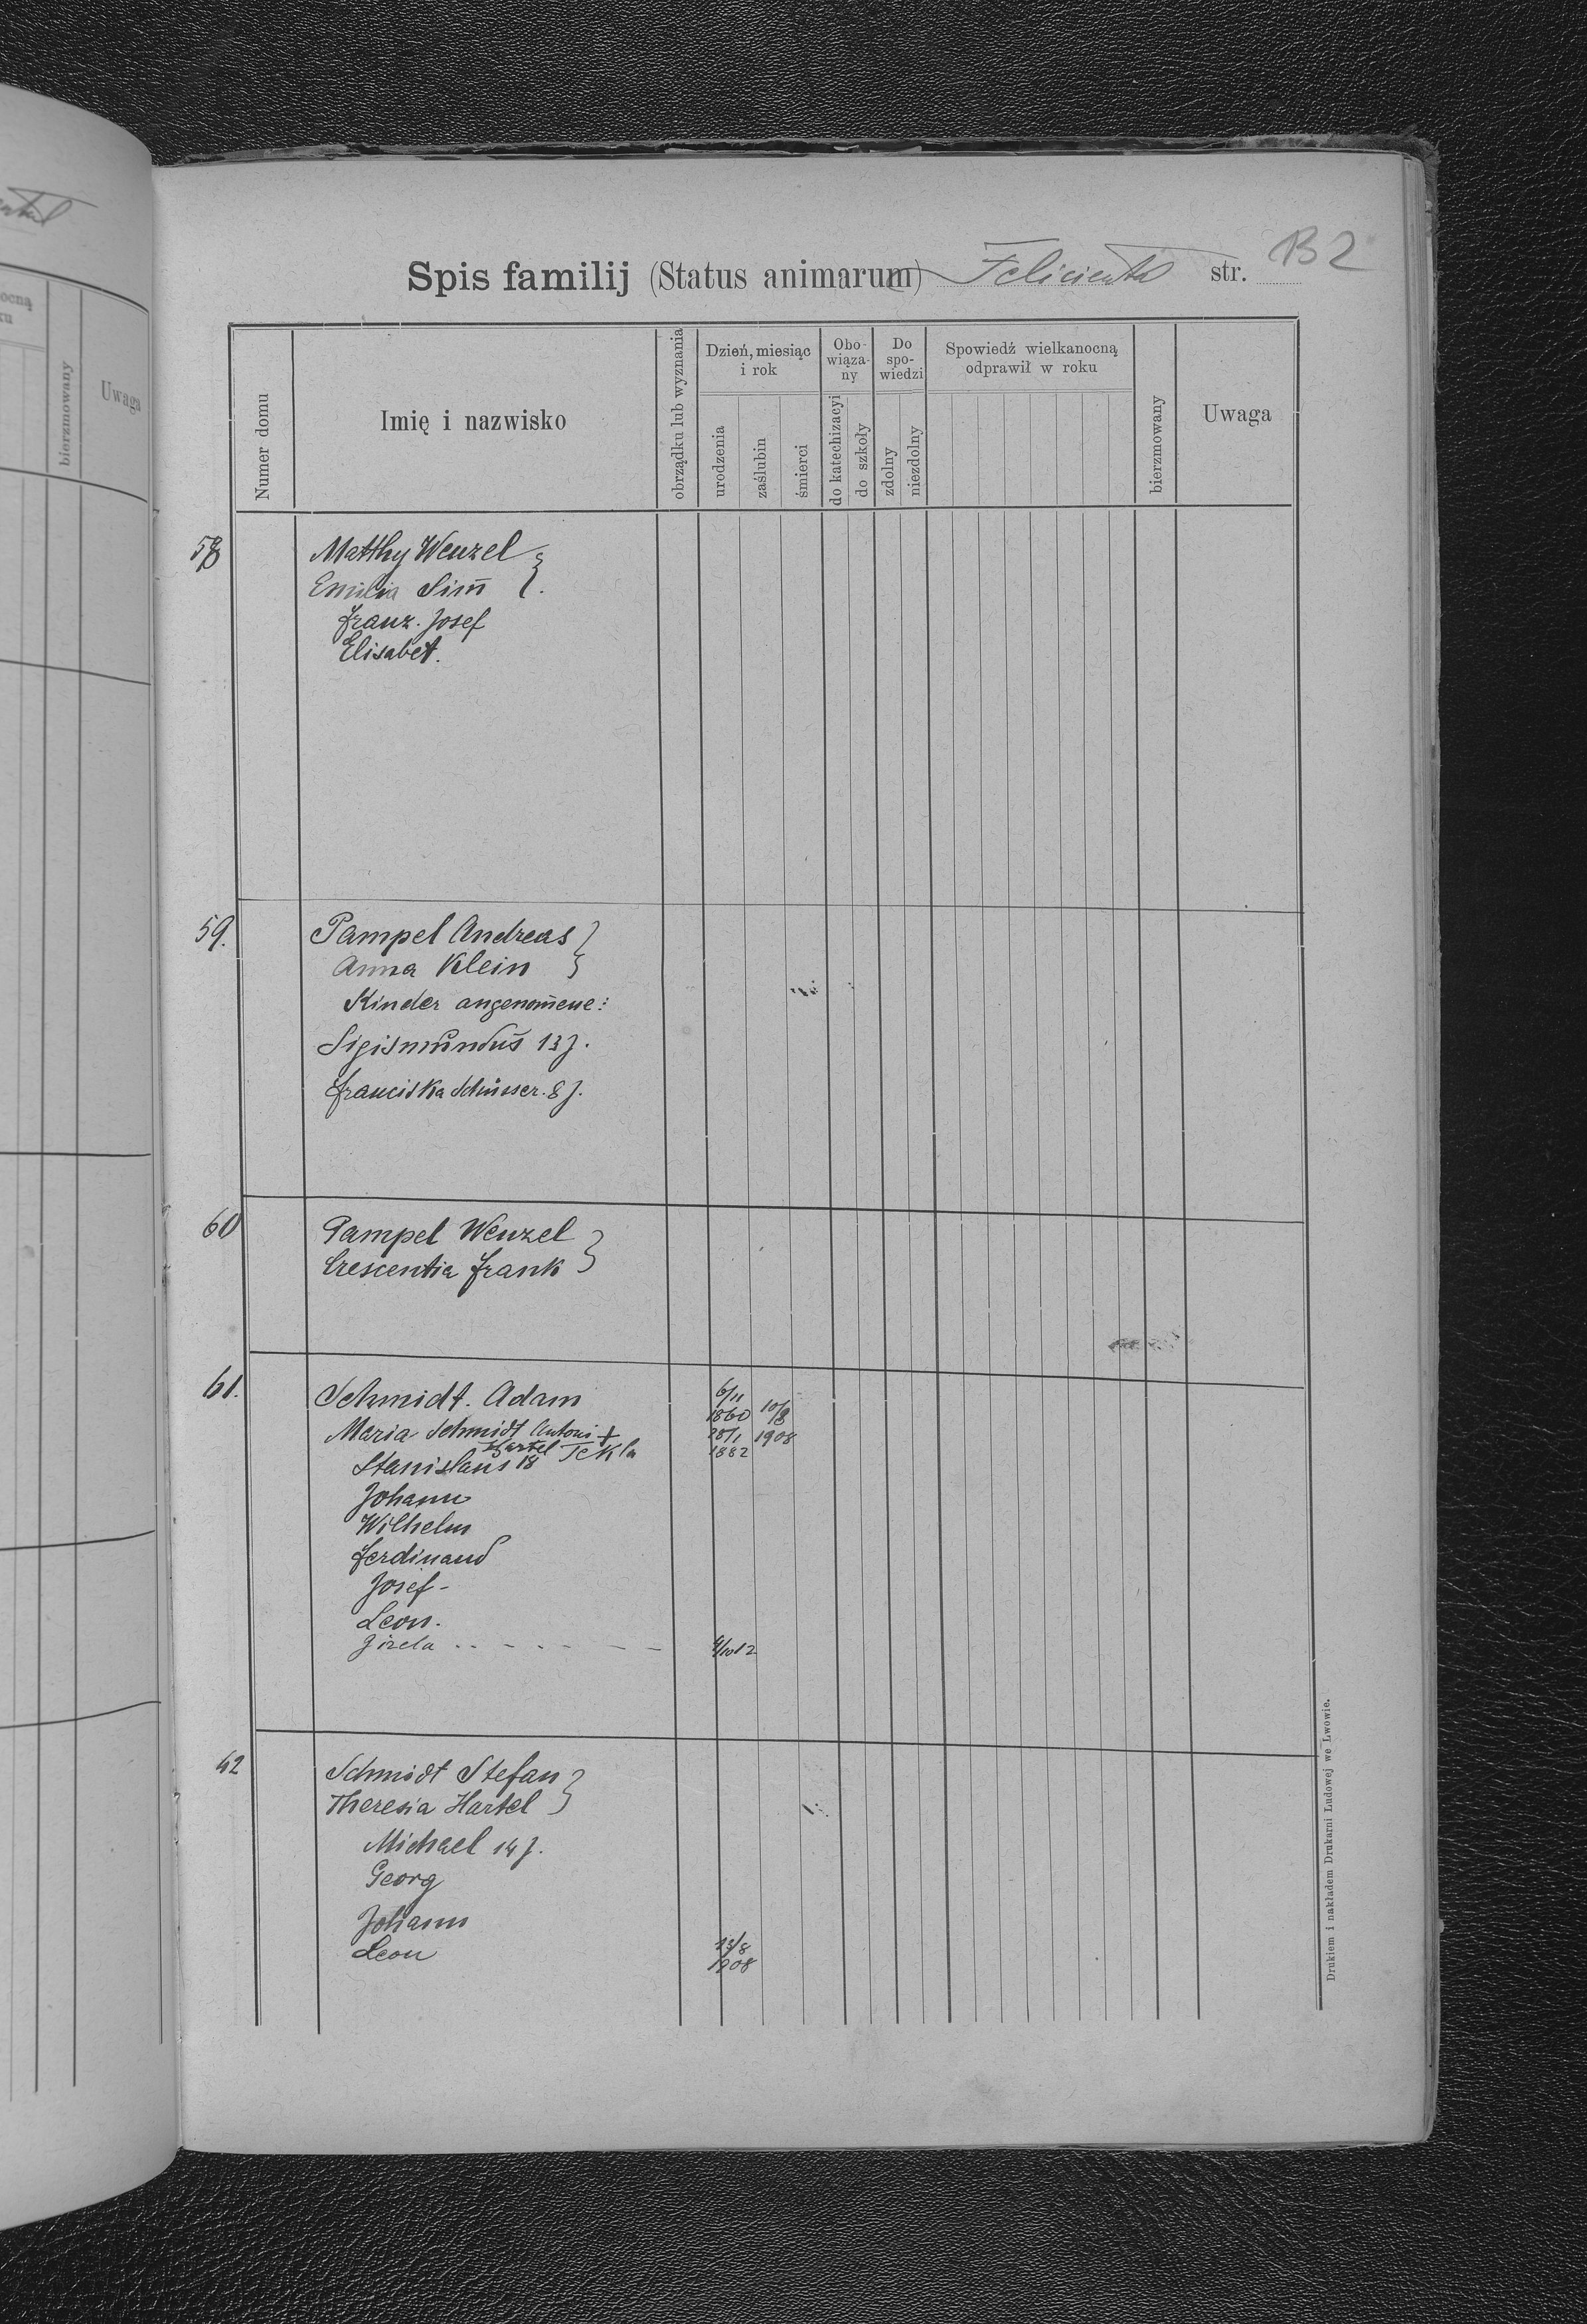 Spis familij (Status animarum) Felicienthal str. B2
Numer domu
Imię i nazwisko
obrządku lub wyznania
Dzień, miesiąc i rok
urodzenia
zaślubin
śmierci
Obo-wiąza-ny
do katechizacyi
do szkoły
Do spo-wiedzi
zdolny
niezdolny
Spowiedź wielkanocną odprawił w roku
bierzmowany
Uwaga
58 Matthy Wenzel
Emilia Sim̄
Franz. Josef
Elisabet.
59. Pampel Andreas
Anna Klein
Kinder angenom̄ene:
Sigismundus 13 J.
Franciska 8 J.
60 Pampel Wenzel
Crescentia Frank
61. Schmidt. Adam 6/11 1860 10/8 1908
Maria Schmidt Antoni +
Hartel Tekla 1882
Stanislaus 18
Johann
Wilhelm
Ferdinand
Josef -
Leon.
Gizela
62 Schmidt Stefan
Theresia Hartel
Michael 14 J.
Georg
Johann
Leon 13/8 1908
Drukiem i nakładem Drukarni Ludowej we Lwowie.
bierzmowany
Uwaga